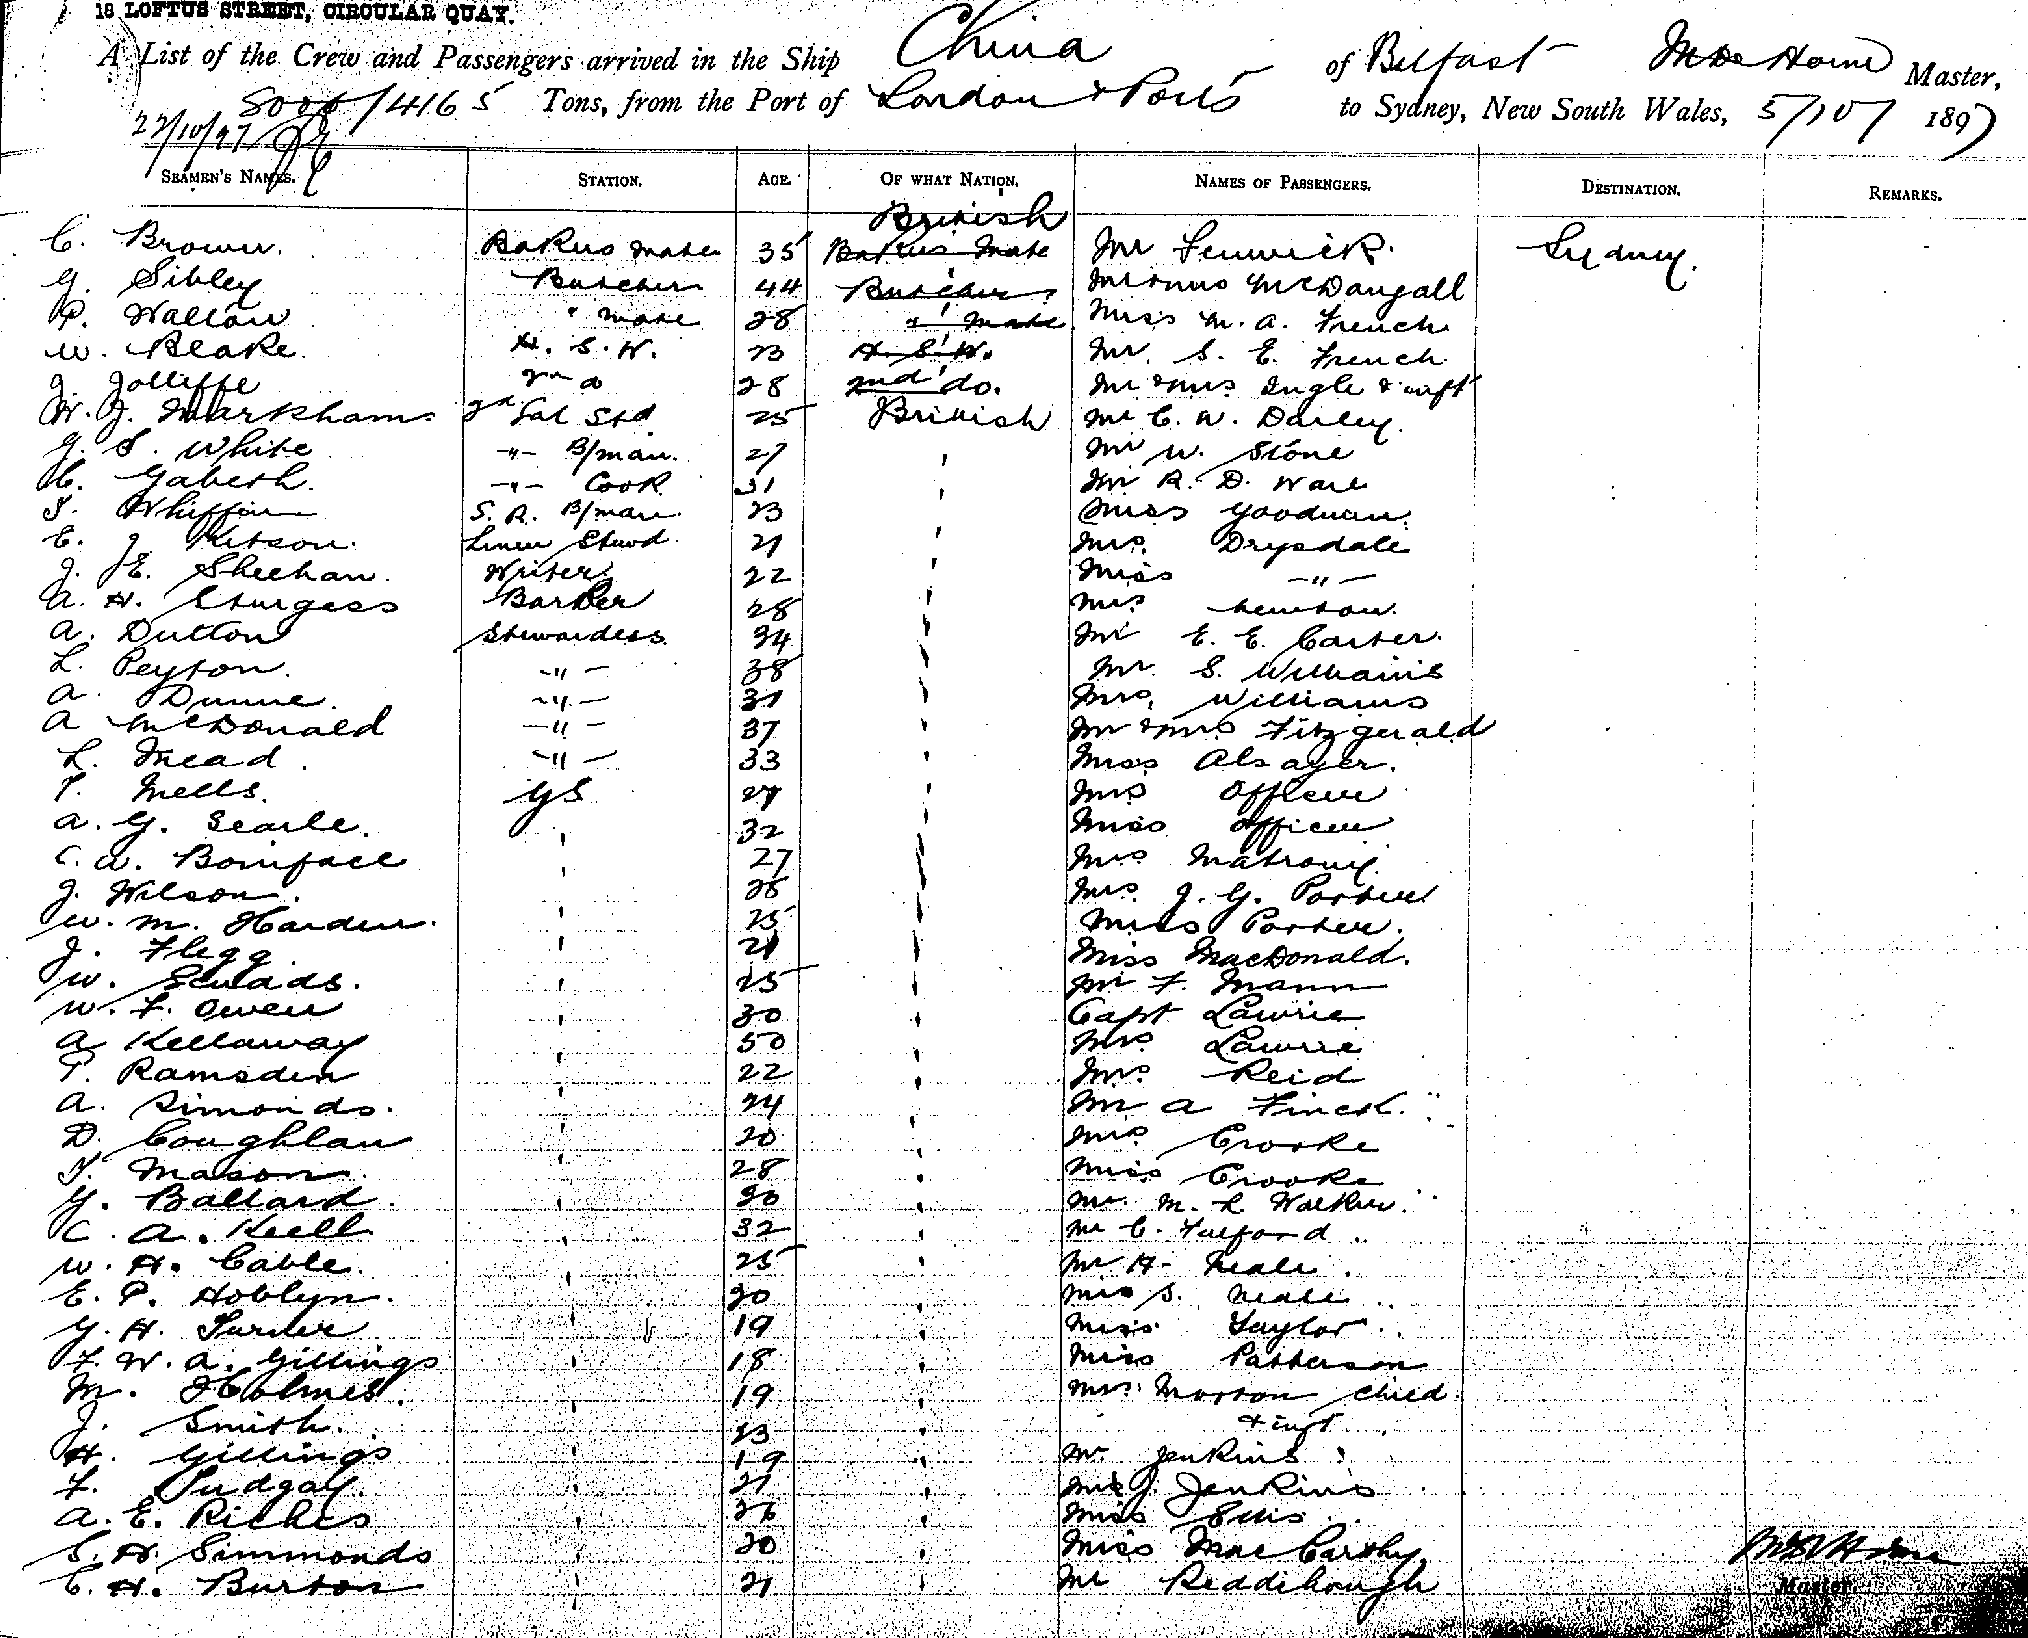 18 LOFTUS STREET, CIRCULAR QUAY.
A List of the Crew and Passengers arrived in the Ship China of Belfast Horne Master,
/4165 Tons, from the Port of London & Ports to Sydney, New South Wales, 5/10/ 1897
22/10/97
SEAMEN'S NAMES. STATION. AGE. OF WHAT NATION. NAMES OF PASSENGERS. DESTINATION. REMARKS.
British
C. Brown. Bakers Mate 35 Bakers Mate Mr Fenwick. Sydney.
G. Sibley Butcher 44 Butcher Mr & Mrs McDougall
P. Walton " mate 28 " Mate Miss M. A. French
W. Blake. H. S. W. 23 H. S. W. Mr. S. E. French
J. Jolliffe 2nd do 28 2nd do. Mr & Mrs Ingle & inft
W. J. Markham 2d Sal Std 25 British Mr C. W. Darley.
G. S. White -"- B/man. 27 ' Mr W. Stone
C. Gabeth. -"- Cook 31 ' Mr R. D. Ware
T. Whiffin S. R. B/man. 23 ' Miss Goodman.
E. J. Kitson. Linen Stwd. 21 ' Mrs. Drysdale
J. E. Sheehan. Writer 22 ' Miss -"-
A. H. Sturgess Barber 28 ' Mrs Newton.
A. Dutton Stewardess 34 ' Mr E. E. Carter.
L. Peyton. -"- 38 ' Mr. S. Williams
A. Dunne. -"- 31 ' Mrs. Williams
A McDonald -"- 37 ' Mr & Mrs Fitzgerald
L. Mead. -"- 33 ' Miss Alsager.
T. Mells. GS 27 ' Mrs Officer
A. G. Searle. ' 32 ' Miss Officer
C. W. Boniface ' 27 ' Mrs
J. Wilson. ' 26 ' Mrs. J. G. Porter
W. M. Harden. ' 25 ' Miss Porter.
J. Flegg ' 21 ' Miss MacDonald.
W. ' 25 ' Mr F. Mann
W. F. Owen ' 30 ' Capt Lawrie
A Kellaway ' 50 ' Mrs Lawrie
P. Ramsden ' 22 ' Mrs. Reid
A. Simonds. ' 24 ' Mr A Finch.
D. Coughlan ' 20 ' Mrs Crooke
T. Mason. ' 28 ' Miss Crooke
G. Ballard. ' 30 ' Mr. M. L Walker.
C. A. Keell ' 32 ' Mr C. Fulford.
W. H. Cable. ' 25 ' Mr H. Neale.
E. P. Hoblyn. ' 20 ' Miss S. Neale
G. H. Turner ' 19 ' Miss Taylor
F. W. A. Gillings ' 18 ' Miss Patterson
M. Holmes. ' 19 ' Mrs. Morton child
J. Smith. ' 23 ' & inft
H. Gillings ' 19 ' Mr Jenkins
F. Pudgay. ' 21 ' J. Jenkins
A. E. Riches ' 26 ' Miss Ellis
S. H. Simmonds ' 20 ' Miss MacCarthy
C. H. Burton ' 21 ' Mr Reddihough
Master.